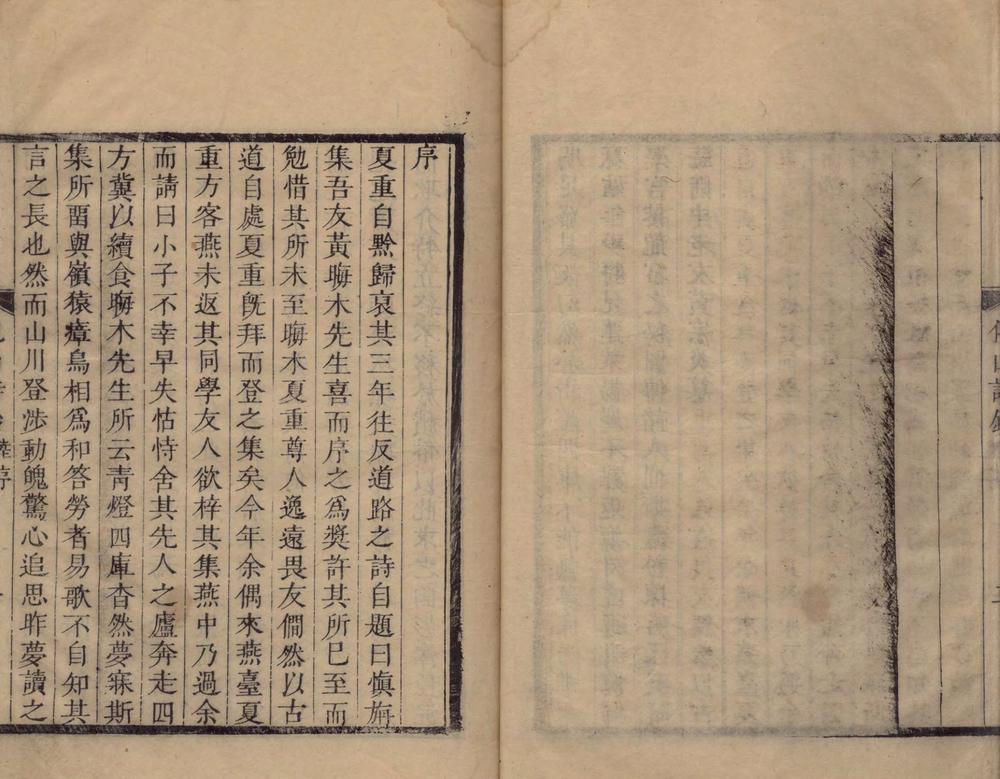 序
夏重自黔歸裒其三年往反道路之詩自題曰愼旃
集吾友黃晦木先生喜而序之爲奬許其所巳至而
勉惜其所未至晦木夏重尊人逸遠畏友僩然以古
道自處夏重旣拜而登之集矣今年余偶來燕臺夏
重方客燕未返其同學友人欲梓其集燕中乃過余
而請曰小子不幸早失怙恃舍其先人之廬奔走四
方冀以續食晦木先生所云靑燈四庫杳然夢寐斯
集所畱與嶺猿瘴鳥相爲和答勞者易歌不自知其
言之長也然而山川登涉動魄驚心追思昨夢讀之